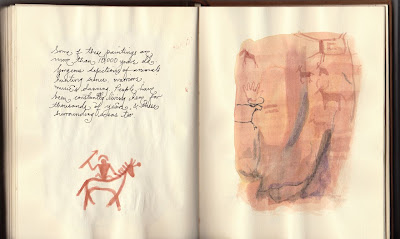 Some of these paintings are
more than 10,000 years old
depictions of animals
hunting scenes, warriors,
music & dancing. People have
been constantly living here for
thousands of years, &
surrounding areas too